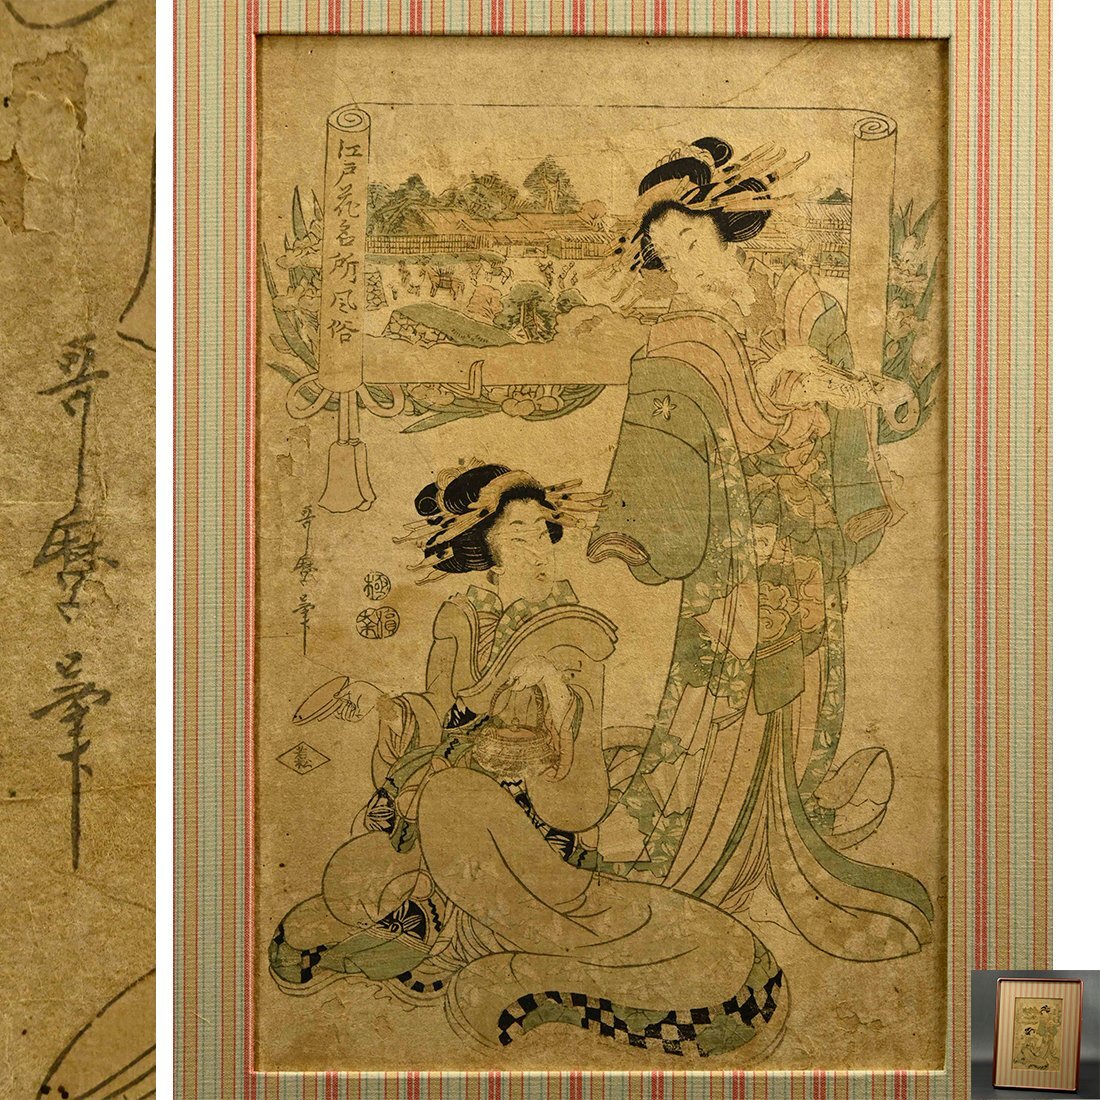 哥麿筆
江戸花名所風俗
哥麿筆
極